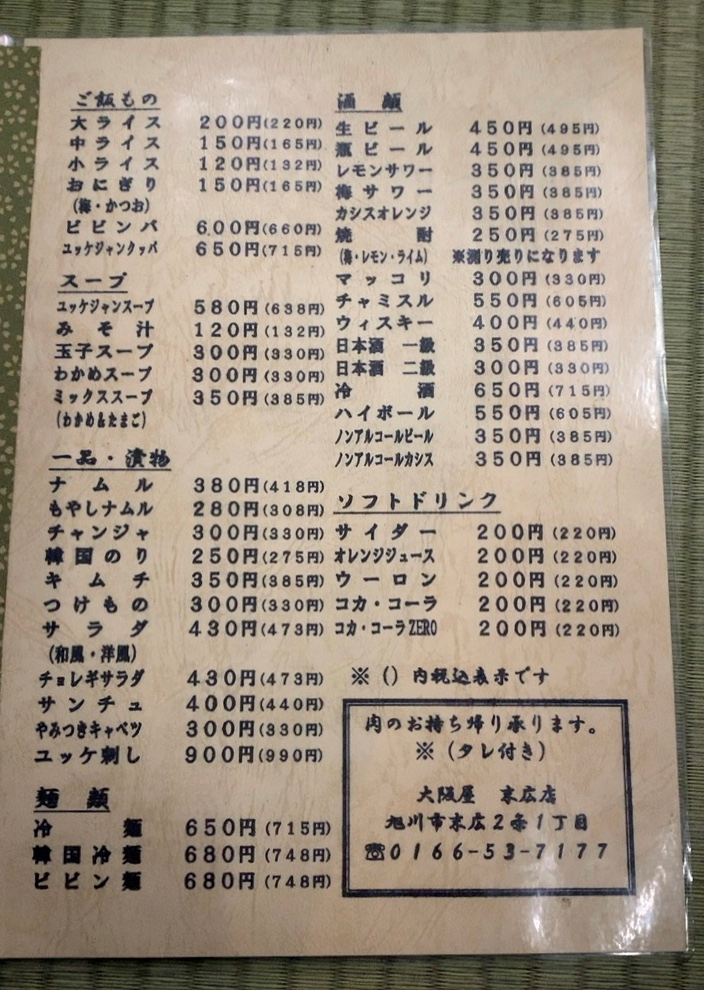 ご飯もの
大ライス 200円(220円)
中ライス 150円(165円)
小ライス 120円(132円)
おにぎり 150円(165円)
(梅・かつお)
ビビンバ 600円(660円)
ユッケジャンクッパ 650円(715円)
スープ
ユッケジャンスープ 580円(638円)
みそ汁 120円(132円)
玉子スープ 300円(330円)
わかめスープ 300円(330円)
ミックススープ 350円(385円)
(わかめ&たまご)
一品・漬物
ナムル 380円(418円)
もやしナムル 280円(308円)
チャンジャ 300円(330円)
韓国のり 250円(275円)
キムチ 350円(385円)
つけもの 300円(330円)
サラダ 430円(473円)
(和風・洋風)
チョレギサラダ 430円(473円)
サンチュ 400円(440円)
やみつきキャベツ 300円(330円)
ユッケ刺し 900円(990円)
麺類
冷麺 650円(715円)
韓国冷麺 680円(748円)
ビビン麺 680円(748円)
酒類
生ビール 450円(495円)
瓶ビール 450円(495円)
レモンサワー 350円(385円)
梅サワー 350円(385円)
カシスオレンジ 350円(385円)
焼酎 250円(275円)
(梅・レモン・ライム) ※測り売りになります
マッコリ 300円(330円)
チャミスル 550円(605円)
ウィスキー 400円(440円)
日本酒 一級 350円(385円)
日本酒 二級 300円(330円)
冷酒 650円(715円)
ハイボール 550円(605円)
ノンアルコールビール 350円(385円)
ノンアルコールカシス 350円(385円)
ソフトドリンク
サイダー 200円(220円)
オレンジジュース 200円(220円)
ウーロン 200円(220円)
コカ・コーラ 200円(220円)
コカ・コーラZERO 200円(220円)
※()内税込表示です
肉のお持ち帰り承ります。
※(タレ付き)
大阪屋 末広店
旭川市末広2条1丁目
☎0166-53-7177